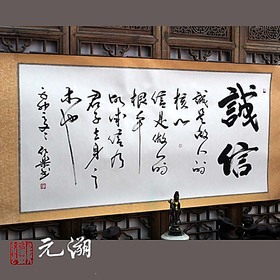 誠信
誠是做人的
核心
信是做人的
根本
故誠信乃
君子立身之
本也
元溯